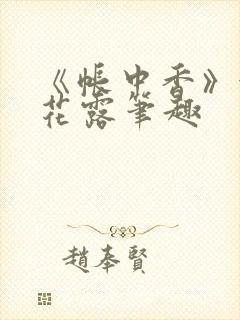 《帐中香》
花露笔趣
赵奉贤